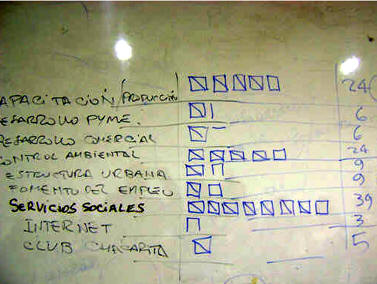 APACITACION/PRODUCCIÓN 24
ESARROLLO PYME. 6
ESARROLLO COMERCIAL 6
ONTROL AMBIENTAL 24
ESTRUCTURA URBANA 9
FOMENTO DEL EMPLEO 9
SERVICIOS SOCIALES 39
INTERNET 3
CLUB CHACARITA 5